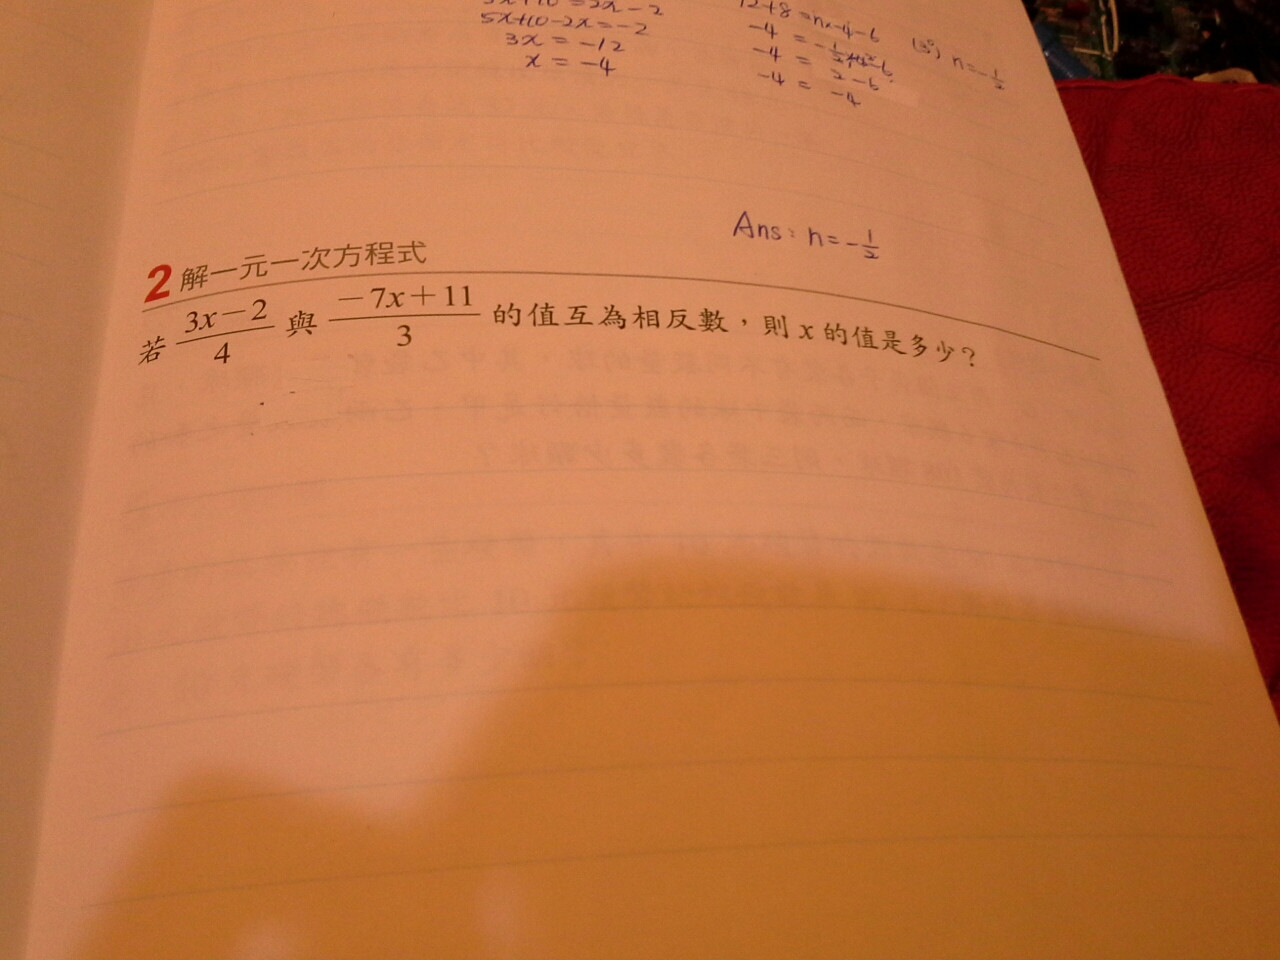 5x+10=2x-2
5x+10-2x=-2
3x=-12
x=-4
12+8=nx-4-6
-4=
-4=2-6
-4=-4
(3°) n=-1/2
Ans: n=-1/2
2 解一元一次方程式
若 (3x-2)/4 與 (-7x+11)/3 的值互為相反數，則 x 的值是多少？